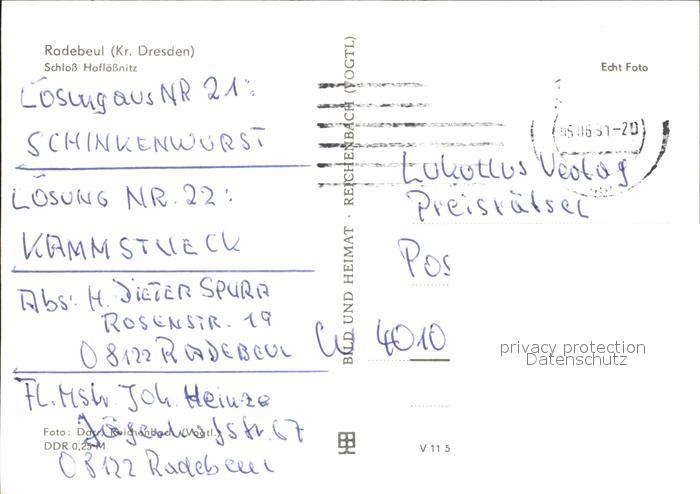 Radebeul (Kr. Dresden)
Schloß Hoflößnitz
Echt Foto
Lösung aus NR 21:
SCHINKENWURST
LÖSUNG NR. 22:
KAMMSTUECK
Abs: H. DIETER SPURA
ROSENSTR. 19
08122 RADEBEUL
Fl. Mstr. Joh. Heinze
Jägerhofstr. 67
08122 Radebeul
Foto: Darr, Reichenbach (Vogtl.)
DDR 0,25 M
BILD UND HEIMAT · REICHENBACH (VOGTL)
05.06.91-20
Lukullus Verlag
Preisrätsel
Pos
W 4010
privacy protection
Datenschutz
V 11 5